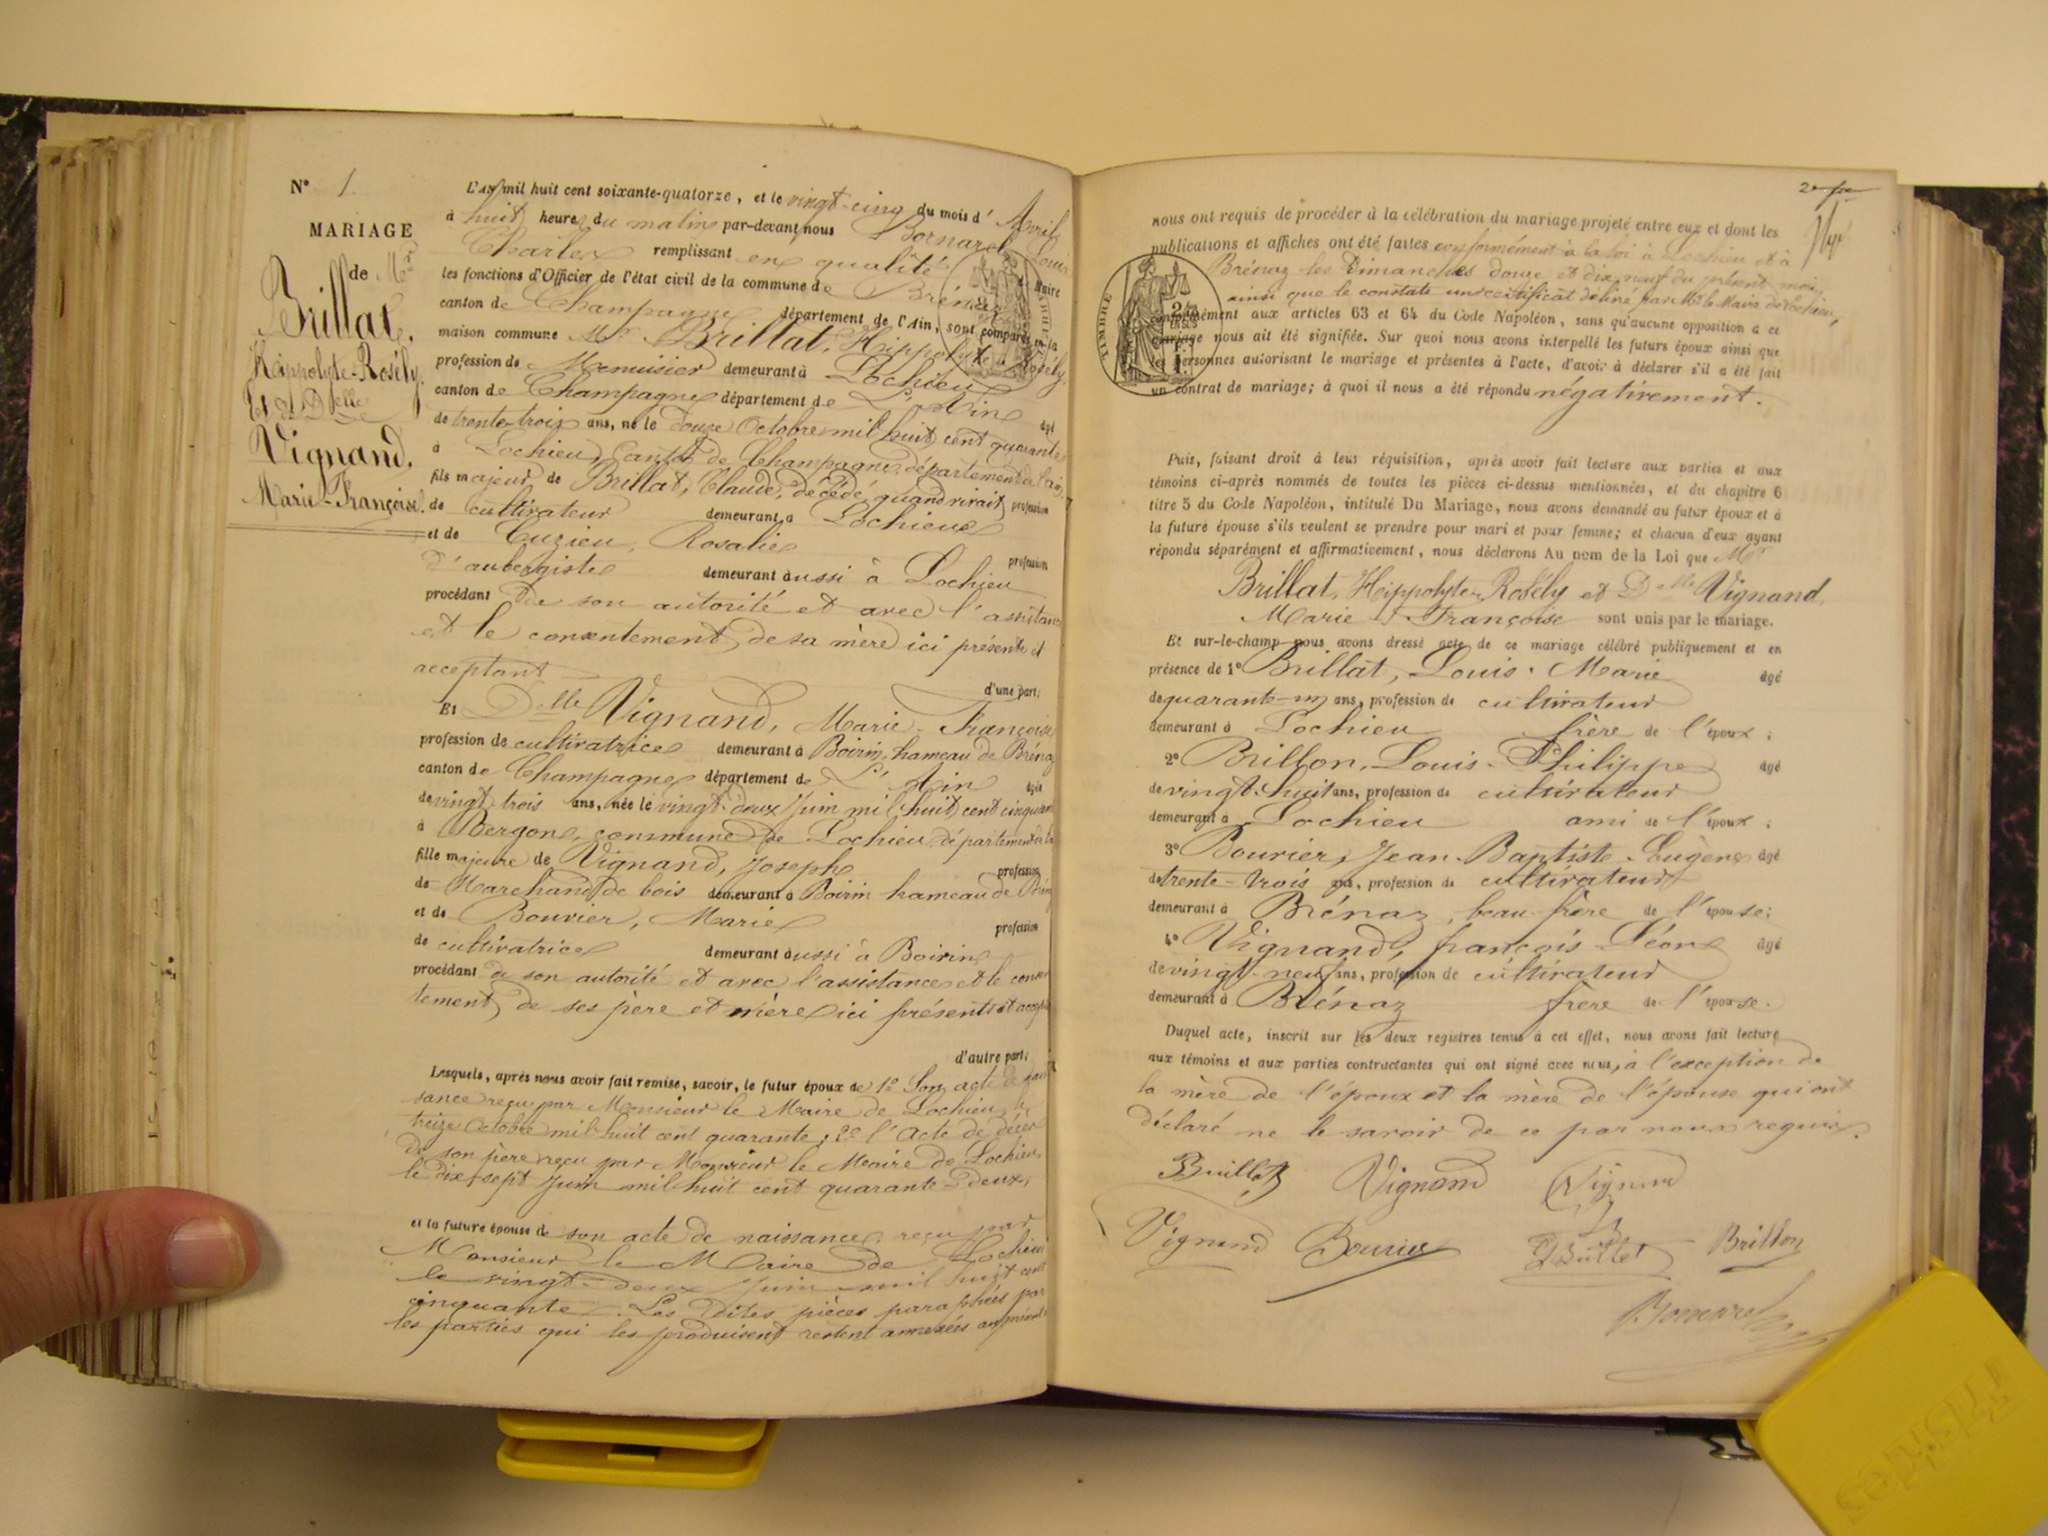 N° 1.
MARIAGE
de Mr
Brillat,
Hippolyte-Rosély.
Et Delle
Vignand,
Marie-Françoise.
L'An mil huit cent soixante-quatorze, et le vingt-cinq du mois d'Avril
à huit heures du matin par-devant nous Bornard Louis
Charles remplissant en qualité de Maire
les fonctions d'Officier de l'état civil de la commune de Brénaz
canton de Champagne département de l'Ain, sont comparus en la
maison commune Mr Brillat, Hippolyte Rosély,
profession de Menuisier demeurant à Lochieu
canton de Champagne département de L'Ain âgé
de trente-trois ans, né le douze Octobre mil huit cent quarante
à Lochieu, canton de Champagne, département de l'Ain,
fils majeur de Brillat, Claude, décédé, quand vivait, profession
de cultivateur demeurant à Lochieu
et de Cuzieu, Rosalie profession
d'aubergiste demeurant aussi à Lochieu
procédant de son autorité et avec l'assistance
et le consentement de sa mère ici présente et
acceptant d'une part;
Et Delle Vignand, Marie-Françoise
profession de cultivatrice demeurant à Boirin, hameau de Brénaz
canton de Champagne département de L'Ain âgée
de vingt trois ans, née le vingt-deux Juin mil huit cent cinquante
à Bergon, commune de Lochieu, département de l'Ain
fille majeure de Vignand, Joseph profession
de Marchand de bois demeurant à Boirin hameau de Brénaz
et de Bouvier, Marie profession
de cultivatrice demeurant aussi à Boirin
procédant de son autorité et avec l'assistance et le consen
tement de ses père et mère ici présents et accept
d'autre part;
Lesquels, après nous avoir fait remise, savoir, le futur époux de 1° Son acte de nais
sance reçu par Monsieur le Maire de Lochieu, le
treize Octobre mil huit cent quarante; 2° l'Acte de décès
de son père reçu par Monsieur le Maire de Lochieu,
le dix-sept Juin mil huit cent quarante-deux;
et la future épouse de son acte de naissance reçu par
Monsieur le Maire de Lochieu
le vingt-deux Juin mil huit cent
cinquante. Les dites pièces paraphées par
les parties qui les produisent restent annexées au présent
2e fre
nous ont requis de procéder à la célébration du mariage projeté entre eux et dont les
publications et affiches ont été faites conformément à la loi à Lochieu et à
Brénaz les Dimanches douze et dix neuf du présent mois,
ainsi que le constate un certificat délivré par Mr le Maire de Lochieu,
conformément aux articles 63 et 64 du Code Napoléon, sans qu'aucune opposition à ce
mariage nous ait été signifiée. Sur quoi nous avons interpellé les futurs époux ainsi que
les personnes autorisant le mariage et présentes à l'acte, d'avoir à déclarer s'il a été fait
un contrat de mariage; à quoi il nous a été répondu négativement.
TIMBRE
Puis, faisant droit à leur réquisition, après avoir fait lecture aux parties et aux
témoins ci-après nommés de toutes les pièces ci-dessus mentionnées, et du chapitre 6
titre 5 du Code Napoléon, intitulé Du Mariage, nous avons demandé au futur époux et à
la future épouse s'ils veulent se prendre pour mari et pour femme; et chacun d'eux ayant
répondu séparément et affirmativement, nous déclarons Au nom de la Loi que Mr
Brillat, Hippolyte-Rosély et Delle Vignand,
Marie-Françoise sont unis par le mariage.
Et sur-le-champ nous avons dressé acte de ce mariage célébré publiquement et en
présence de 1° Brillat, Louis-Marie âgé
de quarante-un ans, profession de cultivateur
demeurant à Lochieu frère de l'époux;
2° Brillon, Louis-Philippe âgé
de vingt-huit ans, profession de cultivateur
demeurant à Lochieu ami de l'époux;
3° Bouvier, Jean-Baptiste-Eugène âgé
de trente-trois ans, profession de cultivateur
demeurant à Brénaz, beau-frère de l'épouse;
4° Vignand, françois-Léon âgé
de vingt-neuf ans, profession de cultivateur
demeurant à Brénaz frère de l'épouse.
Duquel acte, inscrit sur les deux registres tenus à cet effet, nous avons fait lecture
aux témoins et aux parties contractantes qui ont signé avec nous, à l'exception de
la mère de l'époux et la mère de l'épouse qui ont
déclaré ne le savoir de ce par nous requis.
Brillat Vignand Vignand
Vignand Bouvier Brillat Brillon
Bornard